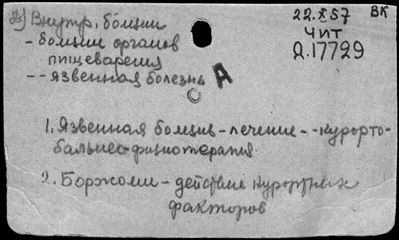 В) Внутр. болезни
22.X 57 ВК
- болезни органов
ЧИТ
пищеварения
Д.17729
-- язвенная болезнь
А
1. Язвенная болезнь - лечение - -курорто-
бальнео-физиотерапия.
2. Боржоми - действие курортных
факторов